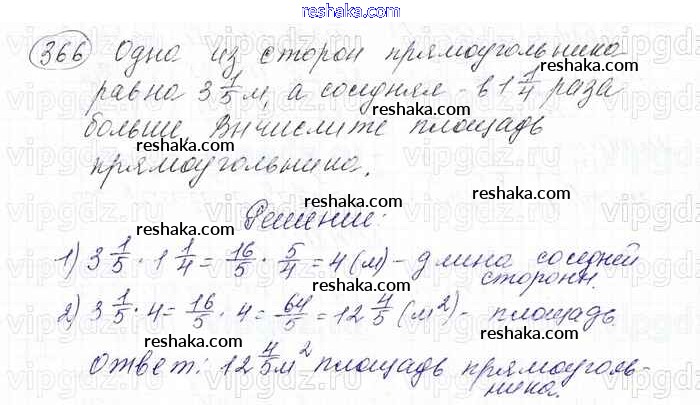 reshaka.com
366 Одна из сторон прямоугольника
равна 3 1/5 м, а соседняя - в 1 1/4 раза
больше. Вычислите площадь
прямоугольника.
Решение:
1) 3 1/5 · 1 1/4 = 16/5 · 5/4 = 4 (м) - длина соседней
стороны.
2) 3 1/5 · 4 = 16/5 · 4 = 64/5 = 12 4/5 (м²) - площадь
Ответ: 12 4/5 м² площадь прямоуголь-
ника.
reshaka.com